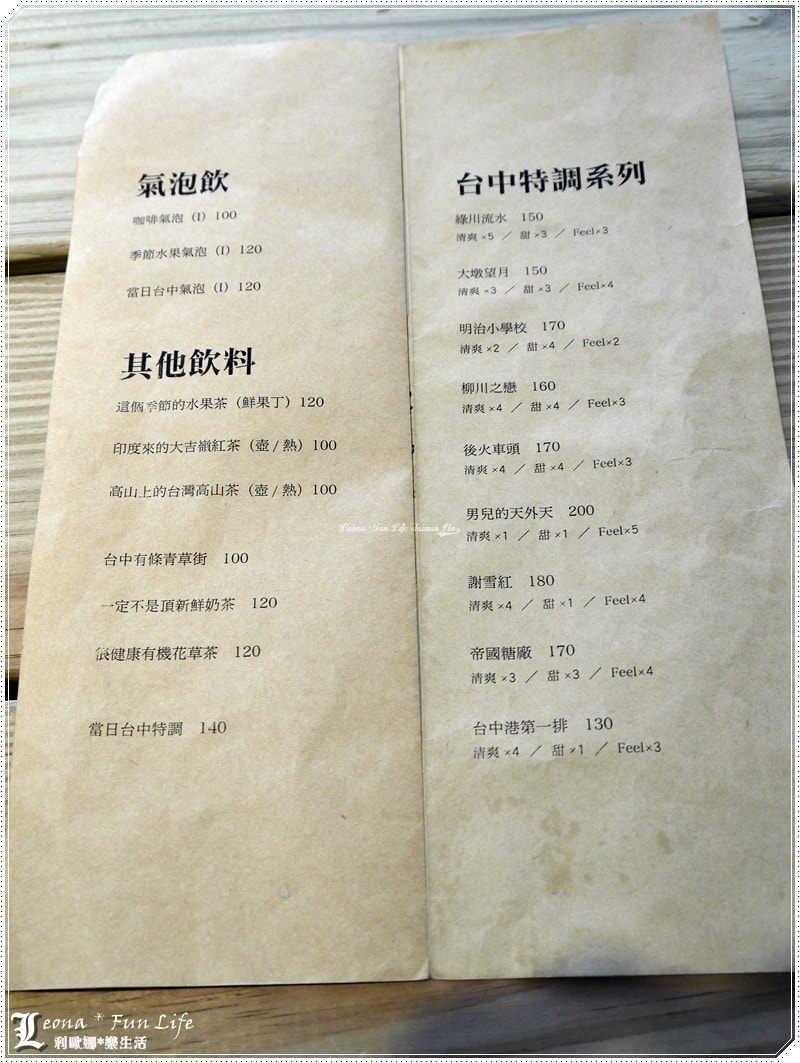 氣泡飲
咖啡氣泡（I）100
季節水果氣泡（I）120
當日台中氣泡（I）120
其他飲料
這個季節的水果茶（鮮果丁）120
印度來的大吉嶺紅茶（壺/熱）100
高山上的台灣高山茶（壺/熱）100
台中有條青草街 100
一定不是頂新鮮奶茶 120
很健康有機花草茶 120
當日台中特調 140
台中特調系列
綠川流水 150
清爽×5 ／ 甜×3 ／ Feel×3
大墩望月 150
清爽×3 ／ 甜×3 ／ Feel×4
明治小學校 170
清爽×2 ／ 甜×4 ／ Feel×2
柳川之戀 160
清爽×4 ／ 甜×4 ／ Feel×3
後火車頭 170
清爽×4 ／ 甜×4 ／ Feel×3
男兒的天外天 200
清爽×1 ／ 甜×1 ／ Feel×5
謝雪紅 180
清爽×4 ／ 甜×1 ／ Feel×4
帝國糖廠 170
清爽×3 ／ 甜×3 ／ Feel×4
台中港第一排 130
清爽×4 ／ 甜×1 ／ Feel×3
Leona * Fun Life
利歐娜*樂生活